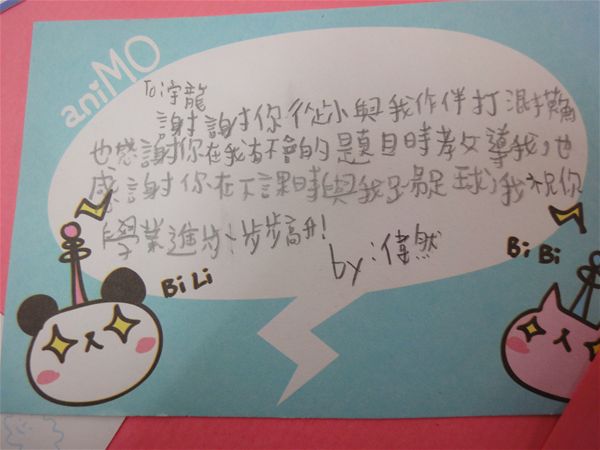 aniMO
To:宇龍
謝謝你從小與我作伴打混摸
也感謝你在我有不會的題目時教導我，也
感謝你在下課時與我踢足球，我祝你
學業進步、步步高升!
by:偉然
BiLi
BiBi